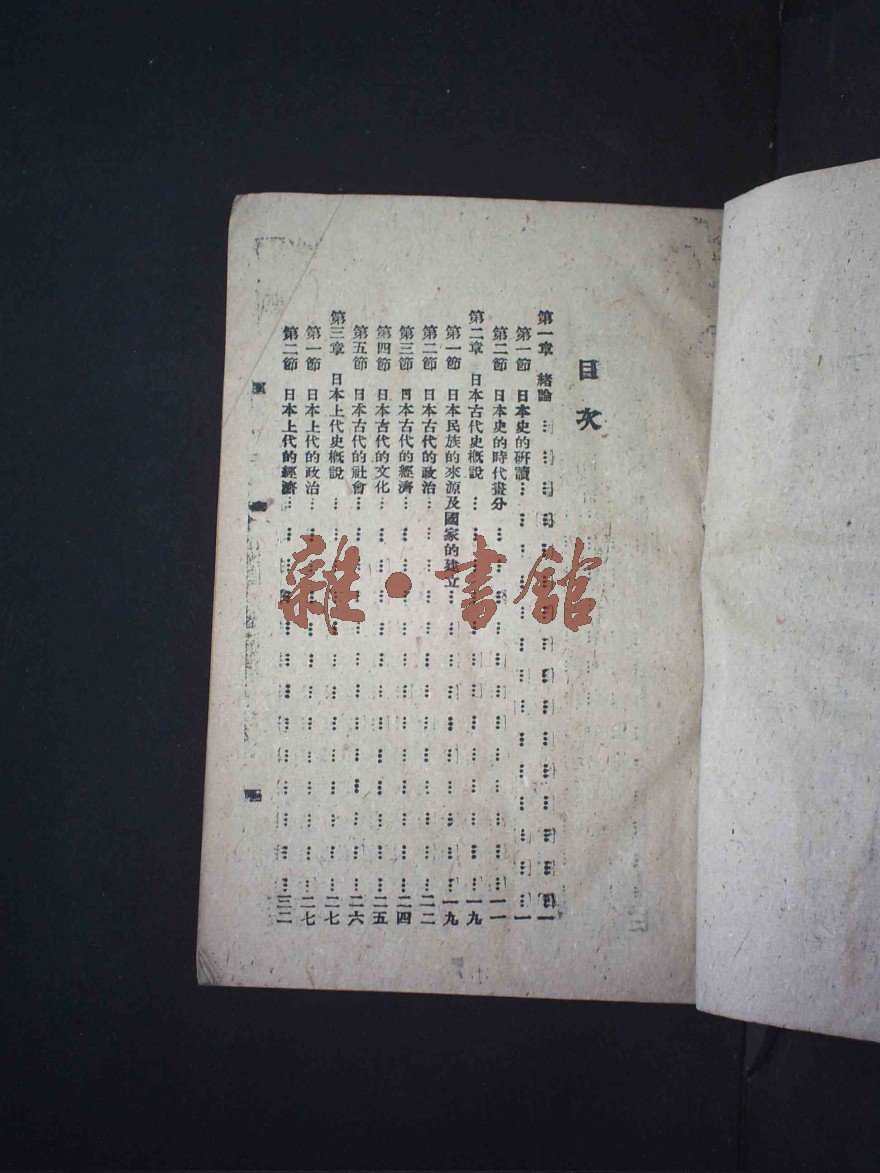 目次
第一章 緒論 一
第一節 日本史的研讀 一
第二節 日本史的時代畫分 一一
第二章 日本古代史概說 一九
第一節 日本民族的來源及國家的建立 一九
第二節 日本古代的政治 二二
第三節 日本古代的經濟 二四
第四節 日本古代的文化 二五
第五節 日本古代的社會 二六
第三章 日本上代史概說 二七
第一節 日本上代的政治 二七
第二節 日本上代的經濟 三二
雜·書館